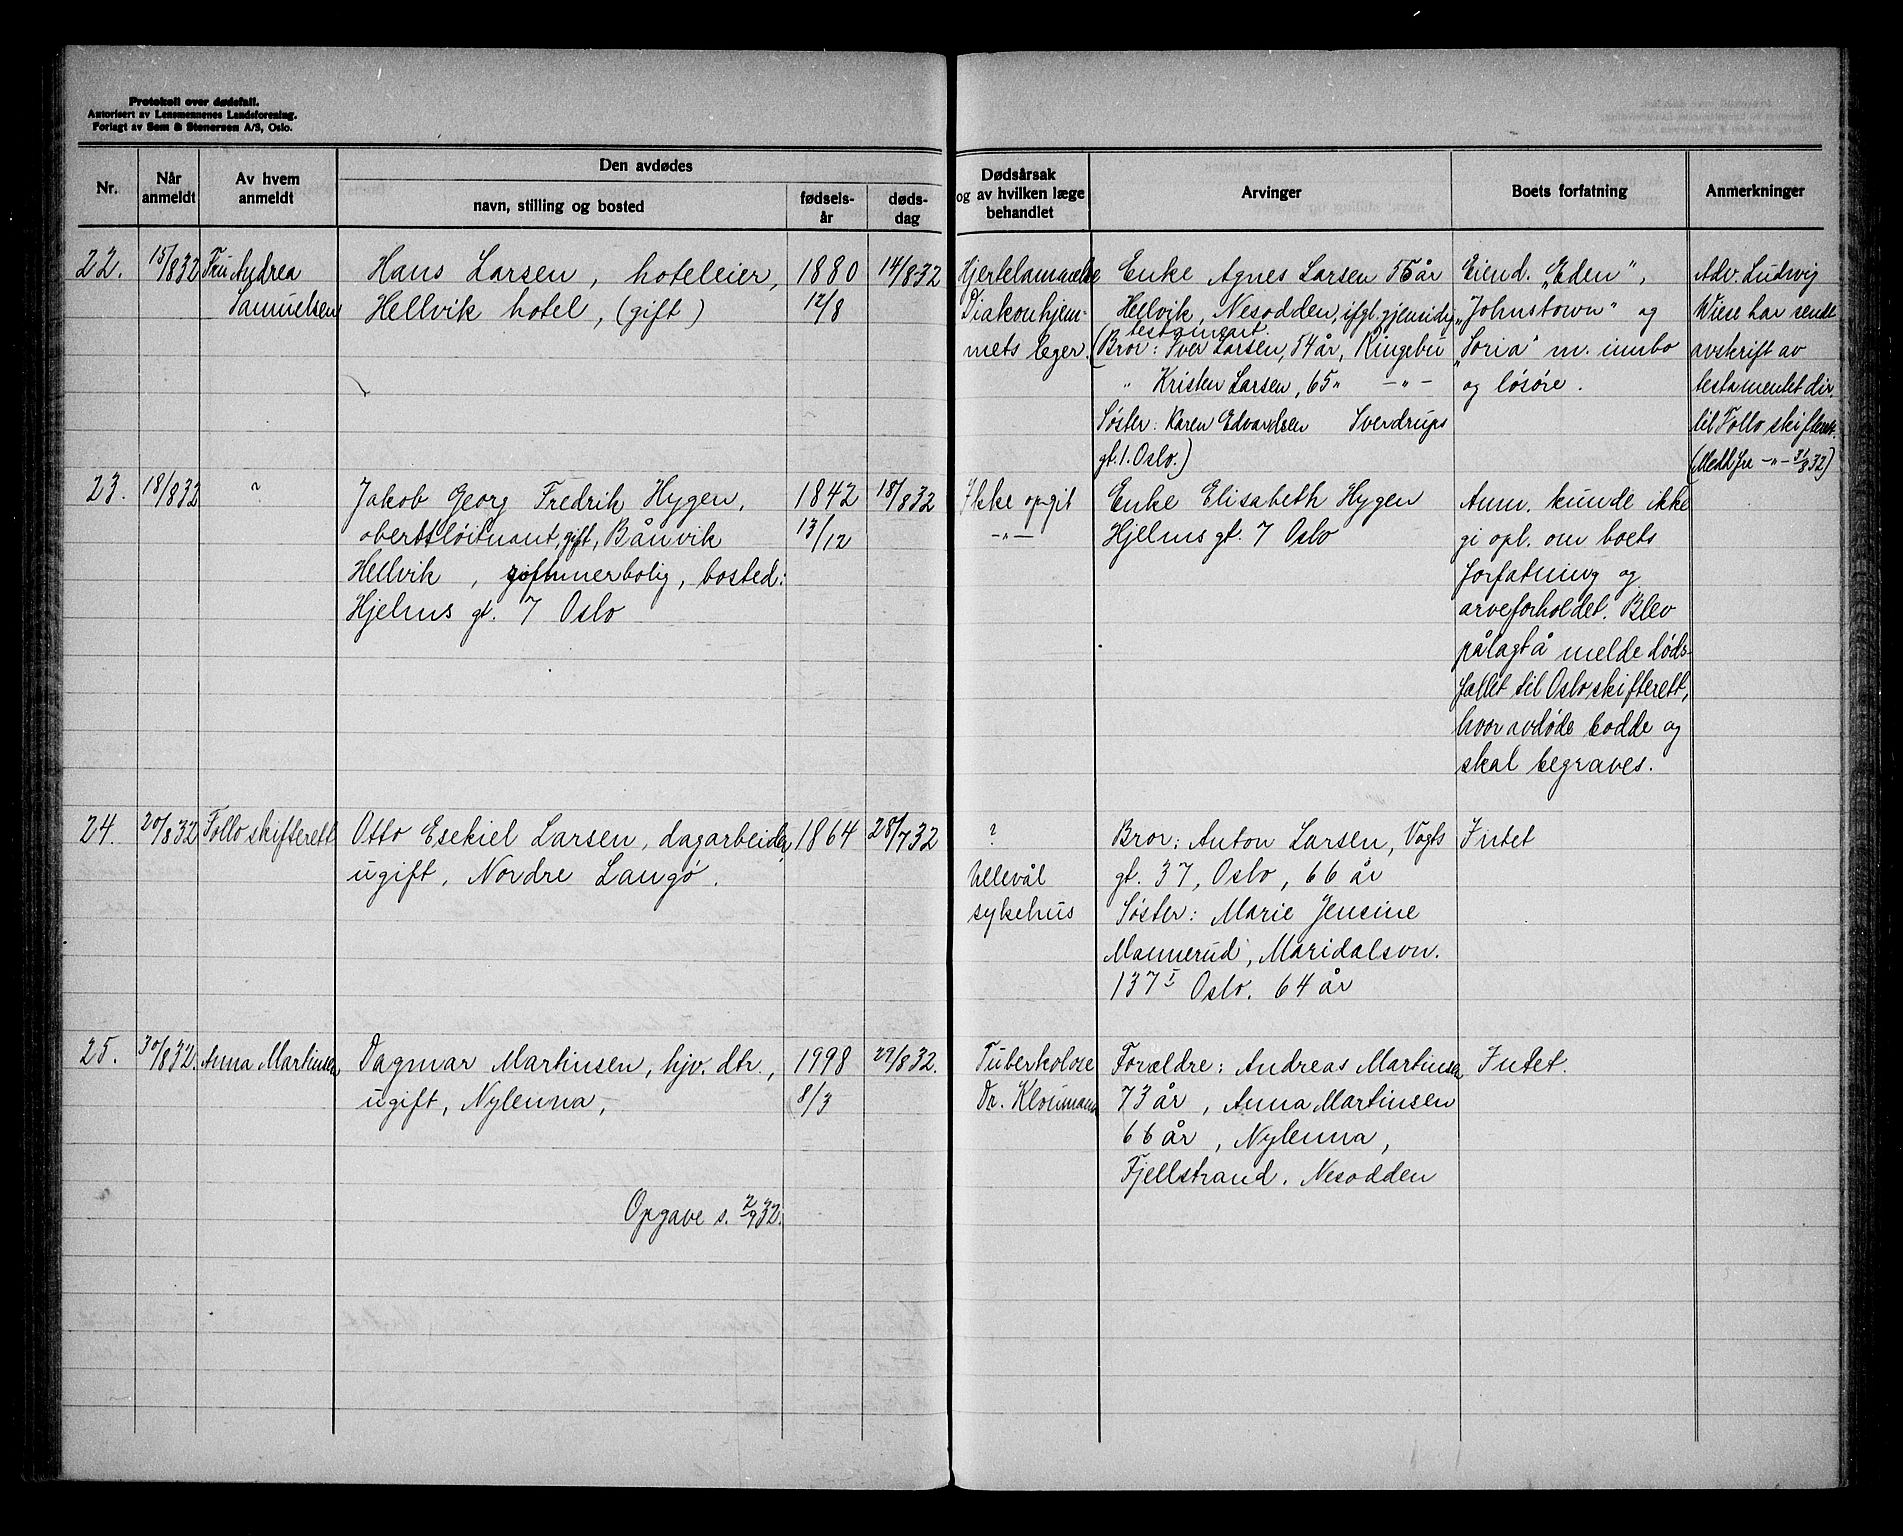 Protokoll over dødsfall.
Autorisert av Lensmennenes Landsforening.
Forlagt av Sem & Stenersen A/S, Oslo.
Nr.
Når
anmeldt
Av hvem
anmeldt
Den avdødes
navn, stilling og bosted
fødsels-
år
døds-
dag
Dødsårsak
og av hvilken læge
behandlet
Arvinger
Boets forfatning
Anmerkninger
22.
15/8 32
Fru Andrea
Samuelsen
Hans Larsen, hoteleier,
Hellvik hotel, (gift)
1880
12/8
14/8 32
Hjertelammelse
Diakonhjem-
mets leger.
Enke Agnes Larsen 55 år
Hellvik, Nesodden, ifgl. gjensidig
testament.
(Bror: Iver Larsen, 54 år, Ringebu
" Kristen Larsen, 65 " -"-
Søster: Karen Edvardsen Sverdrups
gt. 1. Oslo.)
Eiend. „Eden",
„Johnstown" og
„Soria" m. innbo
og løsøre.
Adv. Ludvig
Wiese har sendt
avskrift av
testamentet dir.
til Follo skifterett.
(Medd. fra -"- 31/8 32)
23.
18/8 32
?
Jakob Georg Fredrik Hygen,
oberstløitnant, gift, Bånvik
Hellvik, sommerbolig, bosted:
Hjelms gt. 7 Oslo
1842
13/12
18/8 32
Ikke opgit
-"-
Enke Elisabeth Hygen
Hjelms gt. 7 Oslo
Anm. kunde ikke
gi opl. om boets
forfatning og
arveforholdet. Blev
pålagt å melde døds-
fallet til Oslo skifterett,
hvor avdøde bodde og
skal begraves.
24.
20/8 32
Follo skifterett
Otto Esekiel Larsen, dagarbeider,
ugift, Nordre Langø.
1864
28/7 32
?
Ullevål
sykehus
Bror: Anton Larsen, Vogts
gt. 37, Oslo, 66 år
Søster: Marie Jensine
Mannerud, Maridalsvn.
137 I Oslo. 64 år
Intet
25.
30/8 32.
Anna Martinsen,
Dagmar Martinsen, hjv. dtr.,
ugift, Nylenna,
1998
8/3
29/8 32.
Tuberkolose
Dr. Kloumann
Forældre: Andreas Martinsen
73 år, Anna Martinsen
66 år, Nylenna,
Fjellstrand, Nesodden
Intet.
Opgave s. 2/9 32.